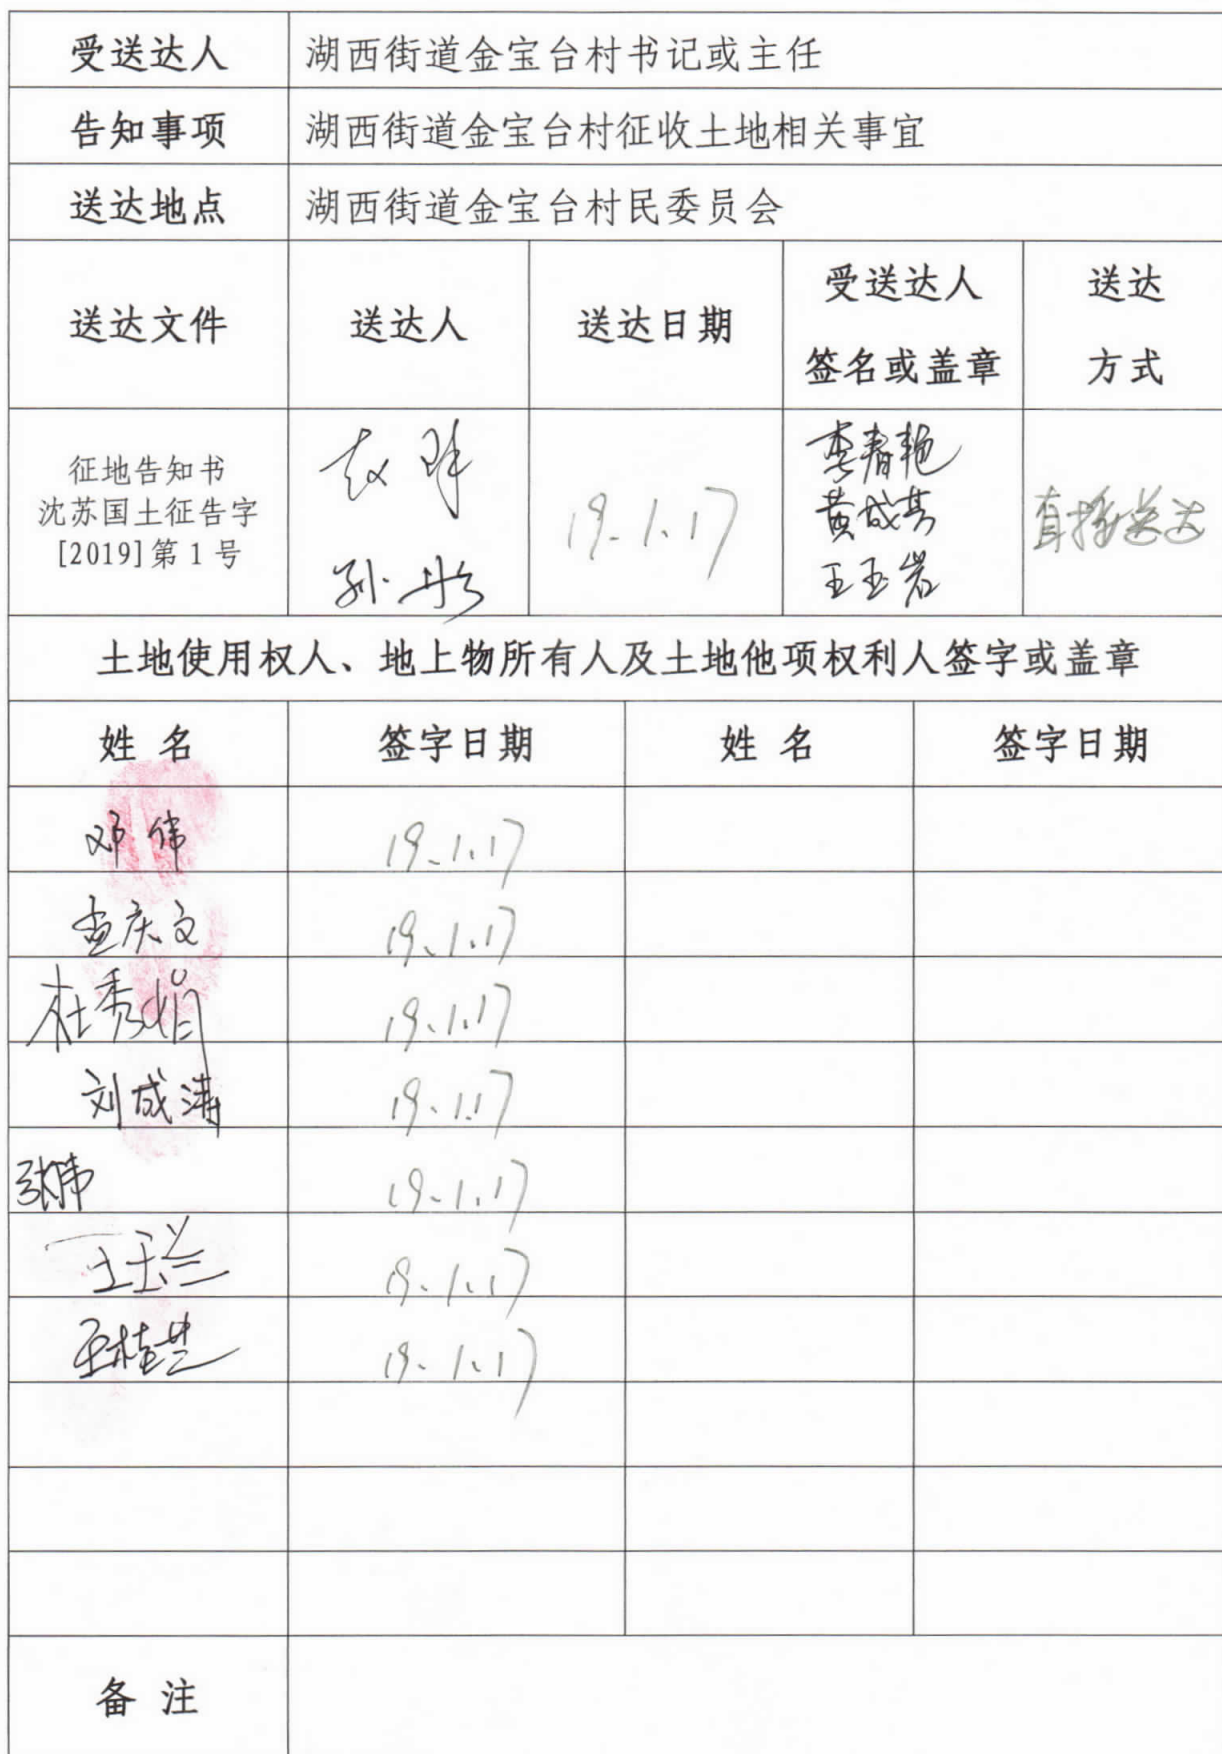 受送达人 湖西街道金宝台村书记或主任
告知事项 湖西街道金宝台村征收土地相关事宜
送达地点 湖西街道金宝台村民委员会
送达文件 送达人 送达日期 受送达人 签名或盖章 送达 方式
征地告知书
沈苏国土征告字
[2019]第 1 号
赵
孙
19.1.17
李春艳
黄成
王玉岩
直接送达
土地使用权人、地上物所有人及土地他项权利人签字或盖章
姓 名 签字日期 姓 名 签字日期
邓伟 19.1.17
孟庆文 19.1.17
杜秀娟 19.1.17
刘成涛 19.1.17
张伟 19.1.17
王玉兰 19.1.17
王桂兰 19.1.17
备 注